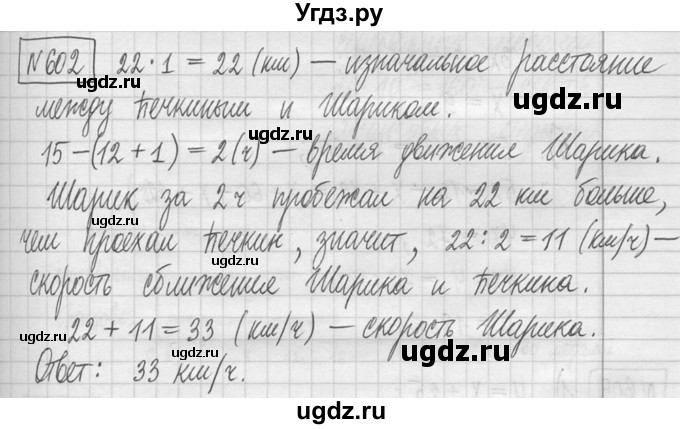 Угдз.ру
№602 22·1 = 22 (км) — изначальное расстояние
между Печкиным и Шариком.
15−(12+1) = 2(ч) — время движения Шарика.
Шарик за 2ч пробежал на 22 км больше,
чем проехал Печкин, значит, 22:2=11 (км/ч) —
скорость сближения Шарика и Печкина.
22+11=33 (км/ч) — скорость Шарика.
Ответ: 33 км/ч.
ugdz.ru
ugdz.ru
ugdz.ru
ugdz.ru
ugdz.ru
ugdz.ru
ugdz.ru
ugdz.ru
ugdz.ru
ugdz.ru
ugdz.ru